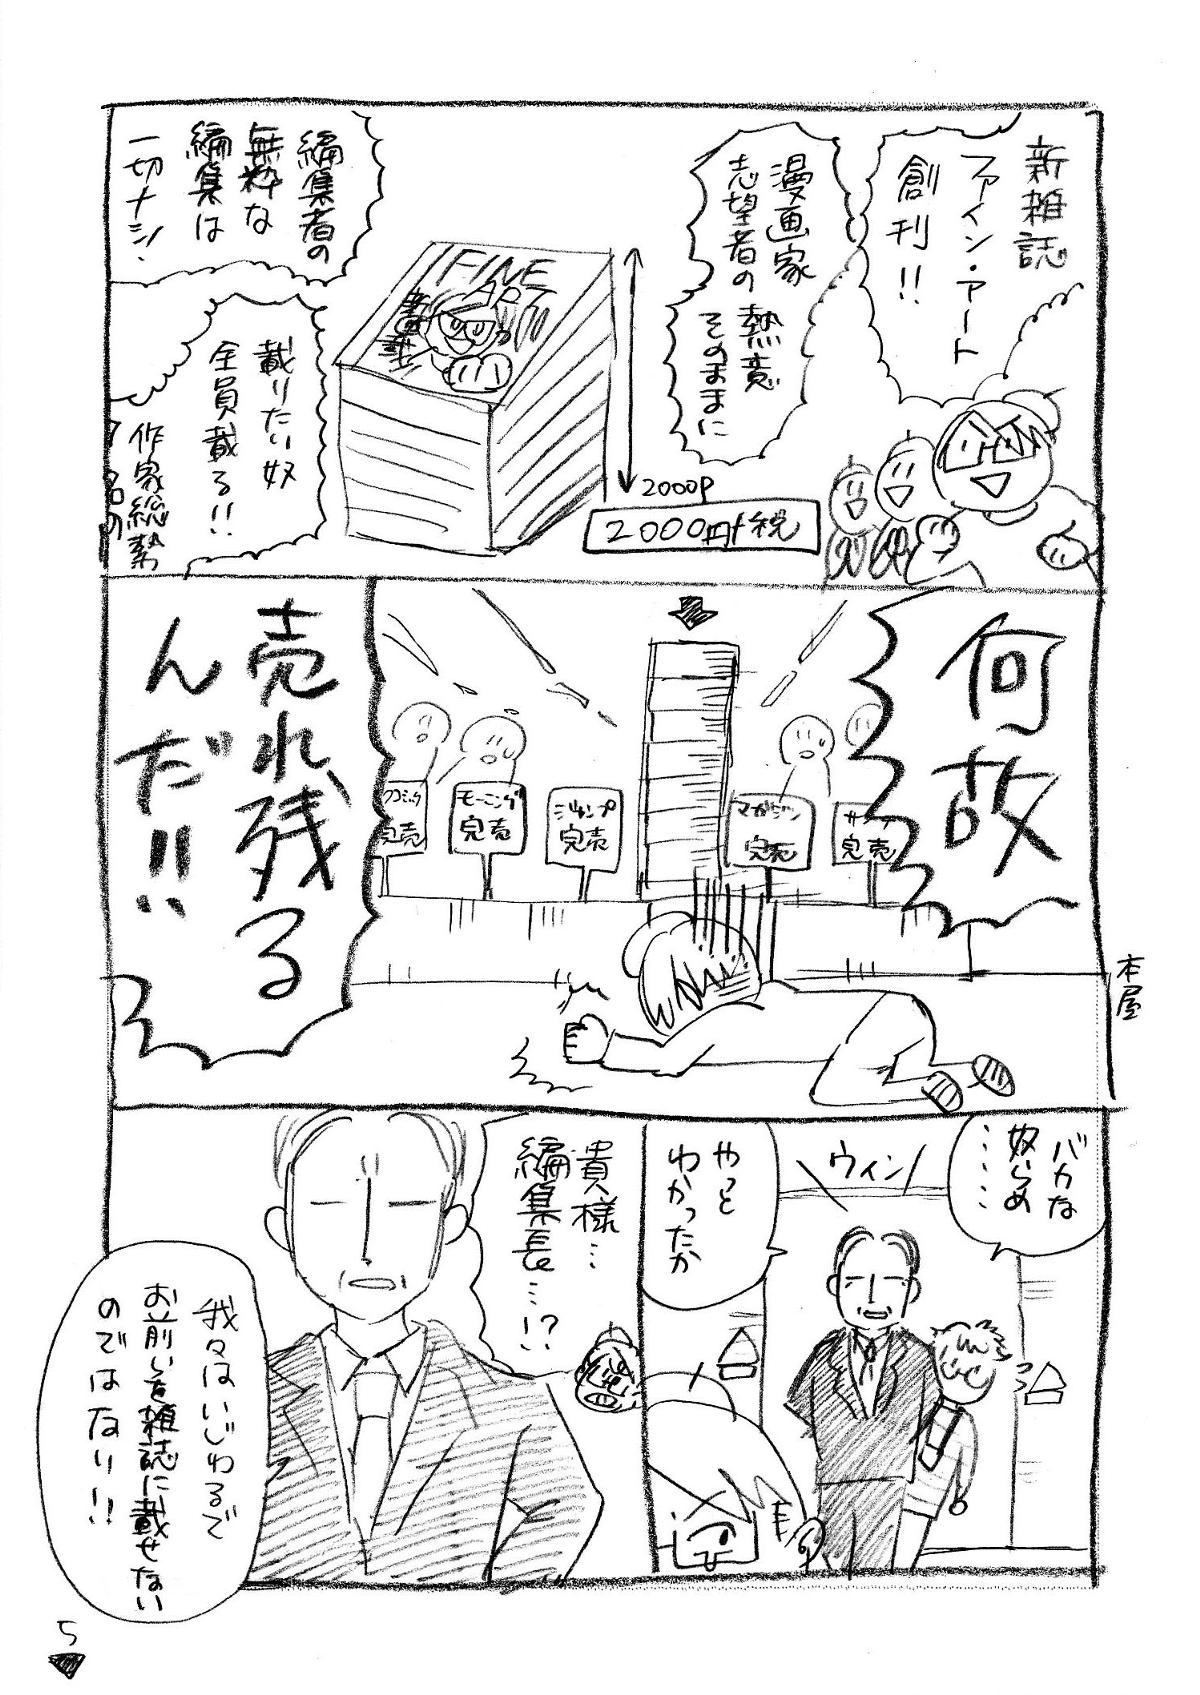 新雑誌
ファイン・アート
創刊!!
漫画家
志望者の
熱意
そのままに
FINE
ART
2000P
2000円+税
編集者の
無粋な
編集は
一切ナシ!
載りたい奴
全員載る!!
作家総勢
何故
売れ残る
んだ!!
マガジン
完売
完売
ジャンプ
完売
モーニング
完売
完売
本屋
バカな
奴らめ
……
ウィン
やっと
わかったか
貴様…
編集長…!?
我々はいじわるで
お前いを雑誌に載せない
のではない!!
5